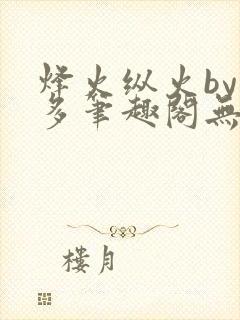 烽火纵火by
多笔趣阁無
樓月